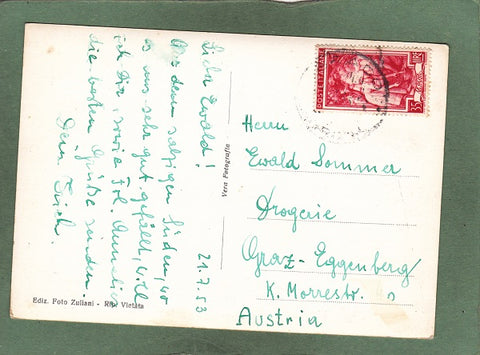 21.7.53
Lieber Ewald!
Aus dem salzigen Süden, wo
es uns sehr gut gefällt, will
ich Dir, sowie Frl. Annelies
die besten Grüße senden.
Dein Erich.
Vera Fotografia
Ediz. Foto Zuliani - Rip. Vietata
POSTE ITALIANE
35
Herrn
Ewald Sommer
Drogerie
Graz-Eggenberg
K. Morrestr.
Austria